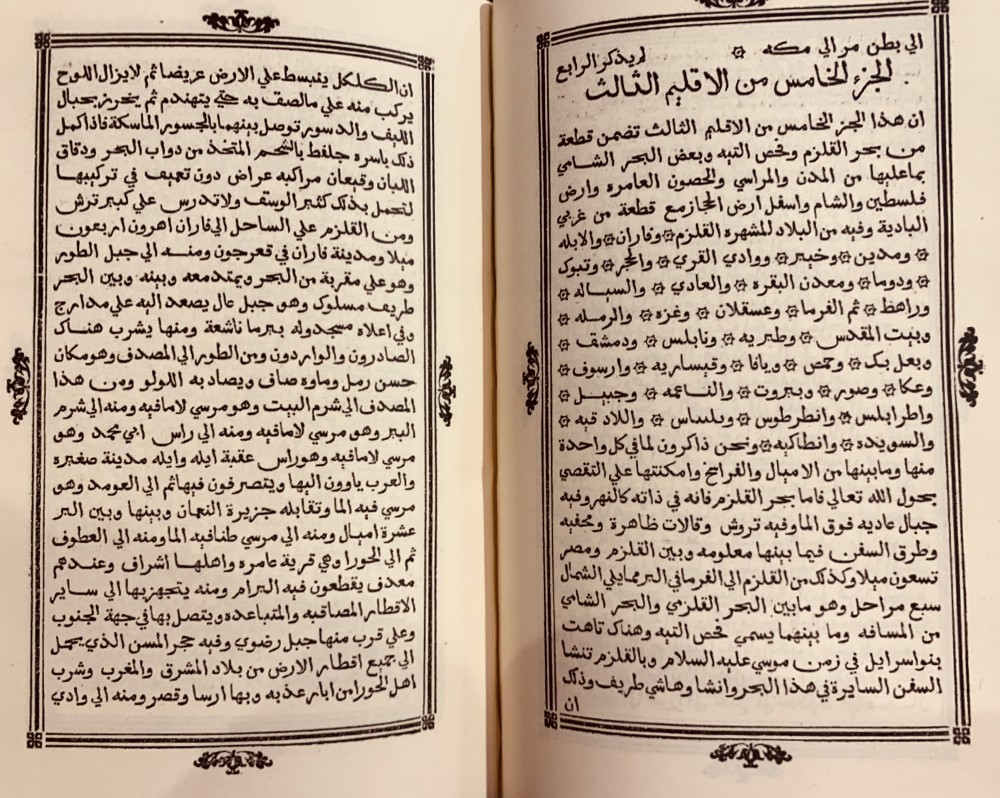 الي بطن مر الي مكه ۞ لم يذكر الرابع
الجزء الخامس من الاقليم الثالث
ان هذا الجزء الخامس من الاقليم الثالث تضمن قطعة
من بحر القلزم وفحص التيه وبعض البحر الشامي
بما عليها من المدن والمراسي والحصون العامره وارض
فلسطين والشام واسفل ارض الحجاز مع قطعة من غربي
البادية وفيه من البلاد المشهره القلزم ۞ وفاران ۞ والايله
۞ ومدين ۞ وخيبر ۞ ووادي القري ۞ والحجر ۞ وتبوك
۞ ودوما ۞ ومعدن البقره ۞ والعادي ۞ والسياله ۞
وراهط ۞ ثم الفرما ۞ وعسقلان ۞ وغزه ۞ والرمله ۞
وبيت المقدس ۞ وطبريه ۞ ونابلس ۞ ودمشق ۞
وبعل بك ۞ وحمص ۞ ويافا ۞ وقيساريه ۞ وارسوف ۞
وعكا ۞ وصور ۞ وبيروت ۞ والناعمه ۞ وجبيل ۞
واطرابلس ۞ وانطرطوس ۞ وبلنياس ۞ واللاد قيه ۞
والسويده ۞ وانطاكيه ۞ ونحن ذاكرون لما في كل واحدة
منها وما بينها من الاميال والفراسخ وامكنتها علي التقصي
بحول الله تعالي فاما بحر القلزم فانه في ذاته كالنهر وفيه
جبال عاديه فوق الما وفيه تروش وقالات ظاهرة ومخفيه
وطرق السفن فيما بينها معلومه وبين القلزم ومصر
تسعون ميلا وكذلك من القلزم الي الفرما في البر مما يلي الشمال
سبع مراحل وهو ما بين البحر القلزمي والبحر الشامي
من المسافه وما بينهما يسمي فحص التيه وهناك تاهت
بنو اسرايل في زمن موسي عليه السلام وبالقلزم تنشا
السفن السايرة في هذا البحر وانشاوها شي طريف وذلك
ان
ان الكلكل ينبسط علي الارض عريضا ثم لا يزال اللوح
يركب منه علي ما لصق به حتي يتهندم ثم يخرز بحبال
الليف والدسور توصل بينهما بالجسور الماسكة فاذا كمل
ذلك باسره جلفط بالشحم المتخذ من دواب البحر ودقاق
اللبان وقيعان مراكبه عراض دون تعميف في تركيبها
لتحمل بذلك كثير الوسق ولا تدرس علي كبير ترش
ومن القلزم علي الساحل الي فاران اهرون اربعون
ميلا ومدينة فاران في قعر جون ومنه الي جبل الطور
وهو علي مقربة من البحر ويمتد معه وبينه وبين البحر
طريف مسلوك وهو جبل عال يصعد اليه علي مدارج
وفي اعلاه مسجد وله بير ما ناشعة ومنها يشرب هناك
الصادرون والواردون ومن الطور الي المصدف وهو مكان
حسن رمل وماوه صاف ويصاد به اللولو ومن هذا
المصدف الي شرم البيت وهو مرسي لا ما فيه ومنه الي شرم
البر وهو مرسي لا ما فيه ومنه الي راس ابي محمد وهو
مرسي لا ما فيه وهو راس عقبة ايله وايله مدينة صغيره
والعرب ياوون اليها ويتصرفون فيها ثم الي العومد وهو
مرسي فيه الما وتقابله جزيرة النعمان وبينها وبين البر
عشرة اميال ومنه الي مرسي طنا فيه الما ومنه الي العطوف
ثم الي الحورا وهي قرية عامره واهلها اشراف وعندهم
معدف يقطعون فيه البرام ومنه يتجهز بها الي ساير
الاقطار المصاقبه والمتباعده ويتصل بها في جهة الجنوب
وعلي قرب منها جبل رضوي وفيه حجر المسن الذي يحمل
الي جميع اقطار الارض من بلاد المشرق والمغرب وشرب
اهل الحورا من ابار عذبه وبها ارسا وقصر ومنه الي وادي